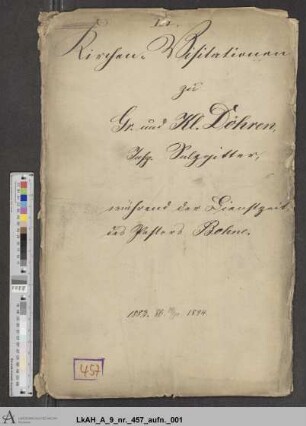 Kirchen-Visitationen
zu
Gr. und Kl. Döhren,
Insp. Salzgitter,
während der Dienstzeit
des Pastors Bohne.
457
LkAH_A_9_nr._457_aufn._001